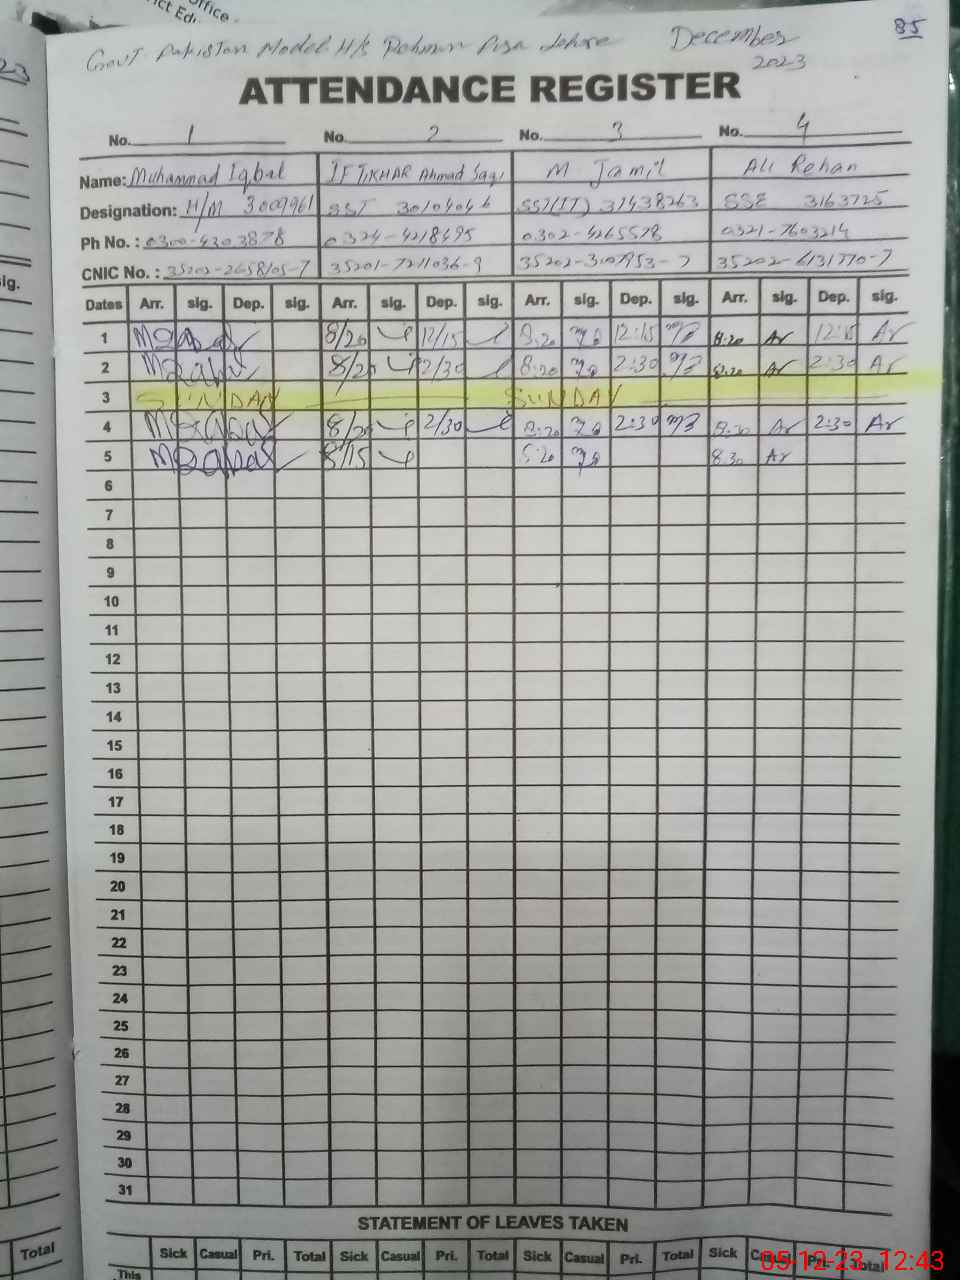 Office
ict Edu
85
Govt. Pakistan Model H/S Rehman Pura Lahore December
2023
23
ATTENDANCE REGISTER
No. 1 No. 2 No. 3 No. 4
Name: Muhammad Iqbal IFTIKHAR Ahmad M Jamil Ali Rehan
Designation: H/M 3009961 SST 30104046 SST(IT) 31438263 SSE 3163725
Ph No. : 0300-4303878 0324-4218495 0302-4265578 0321-7603214
CNIC No. : 35202-2658105-7 35201-7211036-9 35202-3107953-7 35202-6131770-7
sig.
Dates Arr. sig. Dep. sig. Arr. sig. Dep. sig. Arr. sig. Dep. sig. Arr. sig. Dep. sig.
1 8/20 12/15 8:20 12:15 8:20 Ar 12:15 Ar
2 8/20 2/30 8:20 2:30 8:20 Ar 2:30 Ar
3 SUNDAY SUNDAY
4 8/20 2/30 8:20 2:30 8:30 Ar 2:30 Ar
5 8/15 8:20 8:30 Ar
6
7
8
9
10
11
12
13
14
15
16
17
18
19
20
21
22
23
24
25
26
27
28
29
30
31
STATEMENT OF LEAVES TAKEN
Total Sick Casual Pri. Total Sick Casual Pri. Total Sick Casual Pri. Total Sick Casual Pri. Total
This
05-12-23 12:43